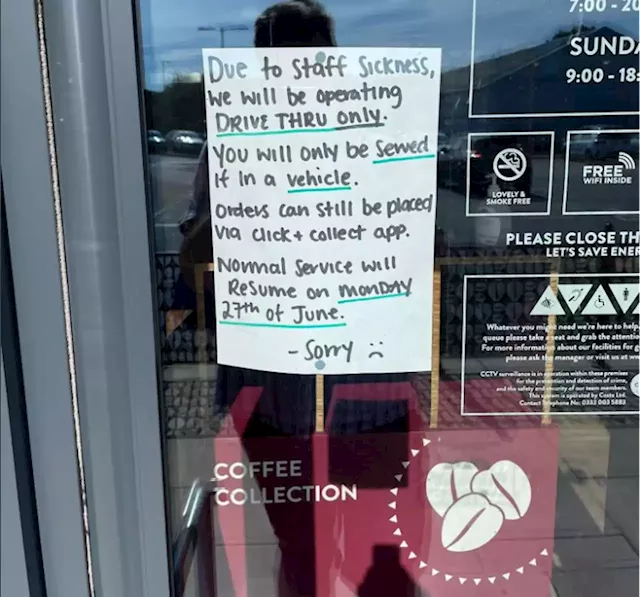 Due to Staff Sickness,
we will be operating
DRIVE THRU only.
You will only be Served
if in a vehicle.
Orders can still be placed
via click + collect app.
Normal Service will
Resume on MONDAY
27th of June.
- Sorry :(
7:00 - 20
SUNDA
9:00 - 18:
LOVELY &
SMOKE FREE
FREE
WIFI INSIDE
PLEASE CLOSE TH
LET'S SAVE ENER
Whatever you might need we're here to help
queue please take a seat and grab the attentio
For more information about our facilities for g
please ask the manager or visit us at ww
CCTV surveillance is in operation within these premises
for the prevention and detection of crime,
and the safety and security of our team members.
This system is operated by Costa Ltd.
Contact Telephone No: 0333 003 5883
COFFEE
COLLECTION